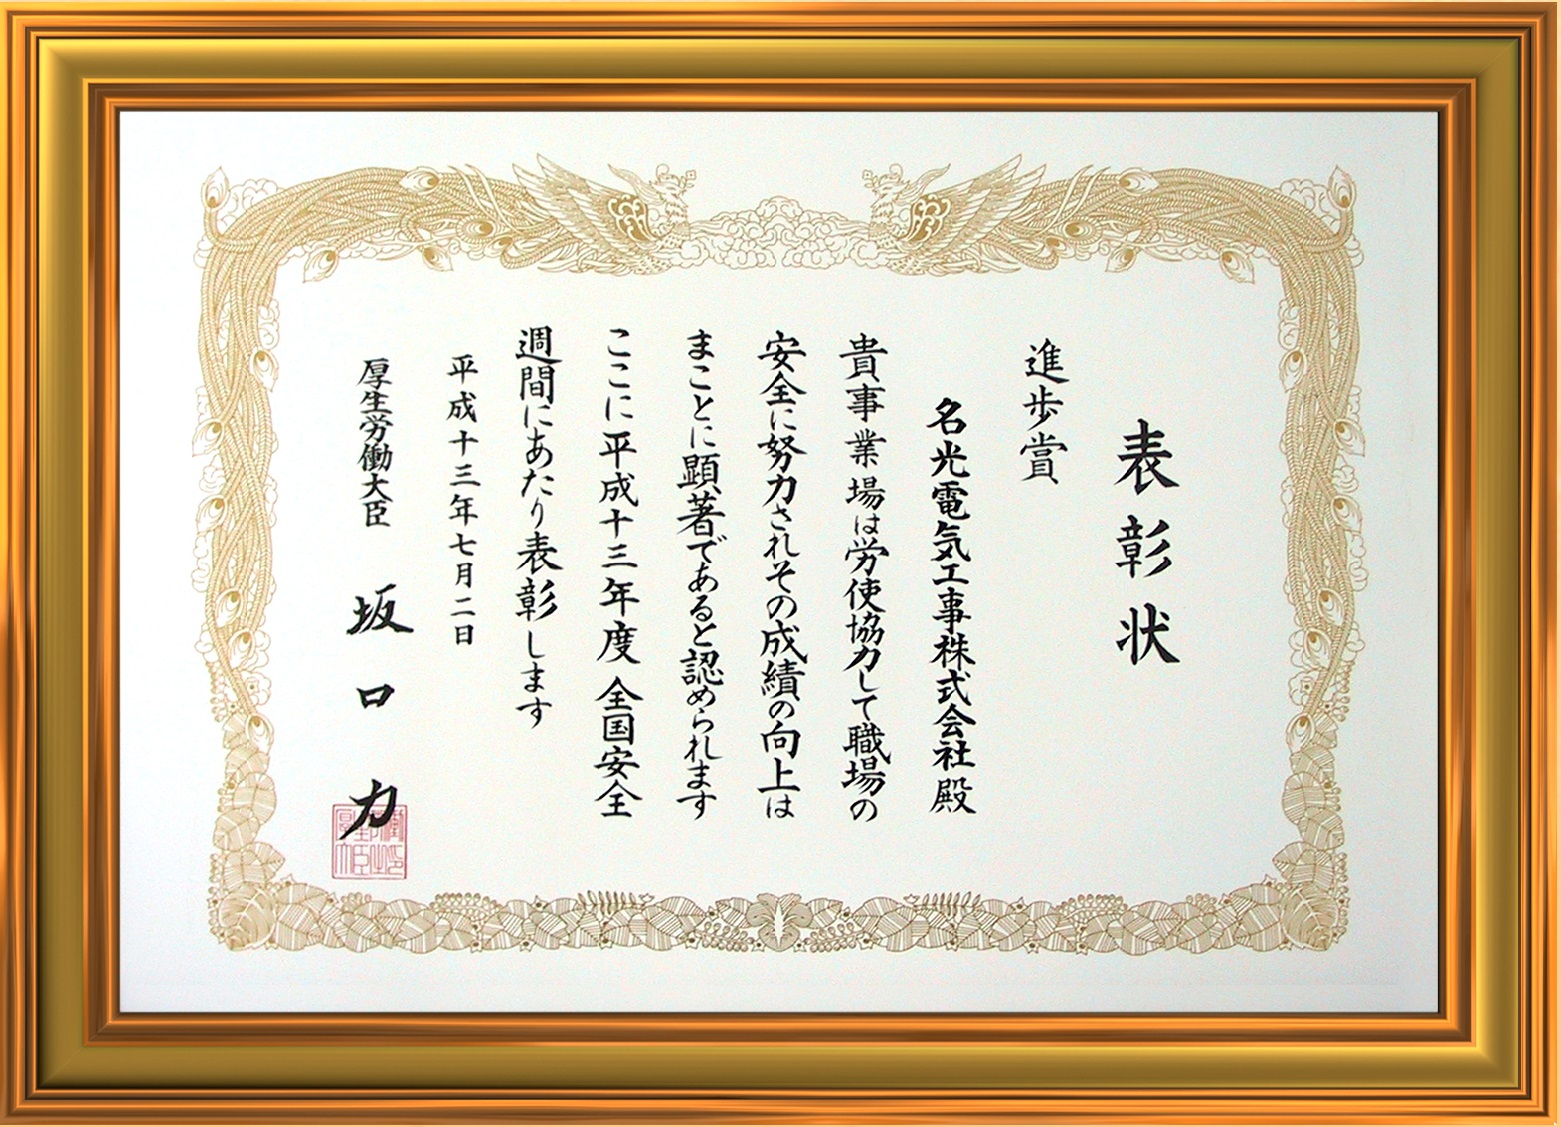 表彰状
進歩賞
名光電気工事株式会社殿
貴事業場は労使協力して職場の
安全に努力されその成績の向上は
まことに顕著であると認められます
ここに平成十三年度全国安全
週間にあたり表彰します
平成十三年七月二日
厚生労働大臣 坂口力